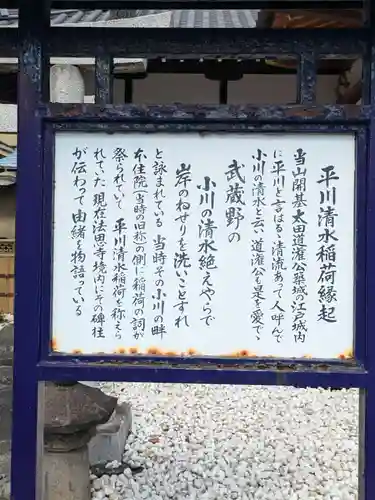 平川清水稲荷縁起
当山開基太田道灌公築城の江戸城内
に平川と言はるゝ清流あって人呼んで
小川の清水と云い道灌公も是を愛でゝ
武蔵野の
小川の清水絶えやらで
岸のねぜりを洗いこそすれ
と詠まれている 当時その小川の畔
本住院(当時の旧称)の側に稲荷の祠が
祭られていて 平川清水稲荷を称えら
れていた 現在法恩寺境内にその碑柱
が伝わって由緒を物語っている